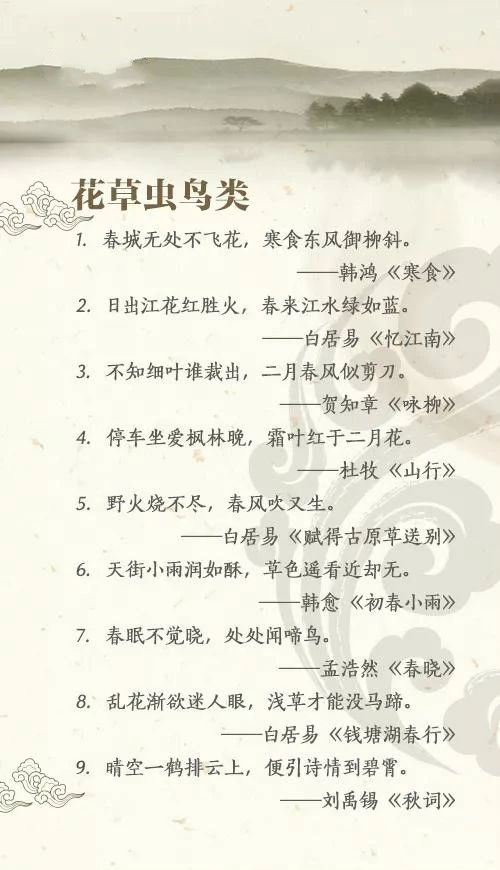 花草虫鸟类
1. 春城无处不飞花，寒食东风御柳斜。
——韩鸿《寒食》
2. 日出江花红胜火，春来江水绿如蓝。
——白居易《忆江南》
3. 不知细叶谁裁出，二月春风似剪刀。
——贺知章《咏柳》
4. 停车坐爱枫林晚，霜叶红于二月花。
——杜牧《山行》
5. 野火烧不尽，春风吹又生。
——白居易《赋得古原草送别》
6. 天街小雨润如酥，草色遥看近却无。
——韩愈《初春小雨》
7. 春眠不觉晓，处处闻啼鸟。
——孟浩然《春晓》
8. 乱花渐欲迷人眼，浅草才能没马蹄。
——白居易《钱塘湖春行》
9. 晴空一鹤排云上，便引诗情到碧霄。
——刘禹锡《秋词》